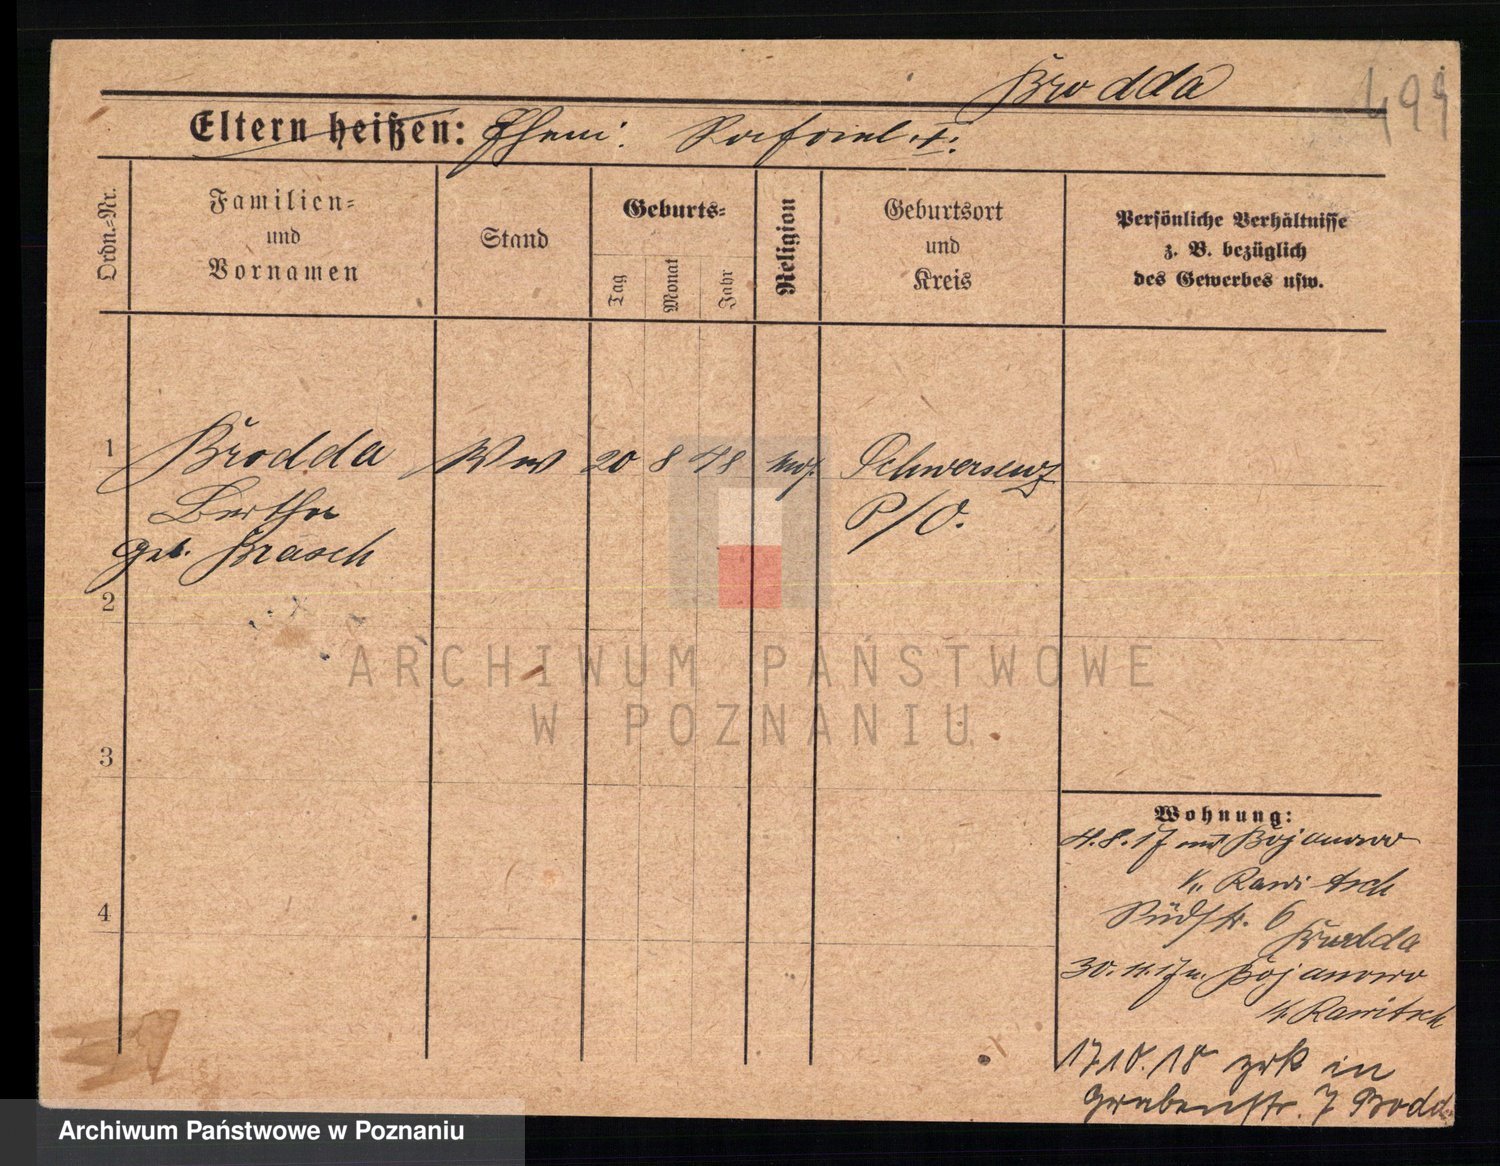 Brodda
499
Eltern heißen: Ehem: Rafael †.
Ordn.-Nr.
Familien- und Vornamen
Stand
Geburts-
Tag
Monat
Jahr
Religion
Geburtsort und Kreis
Persönliche Verhältnisse
z. B. bezüglich
des Gewerbes usw.
1 Brodda Ww 20 8 48 mos. Schwersenz
Bertha P/O.
geb. Brasch
2
3
4
Wohnung:
4.8.17 aus Bojanowo
Kr. Rawitsch
Südstr. 6
Brodda
30.11.17 n. Bojanowo
Kr. Rawitsch
17.10.18 zrk in
Grabenstr. 7 Brodda
ARCHIWUM PAŃSTWOWE
W POZNANIU
Archiwum Państwowe w Poznaniu